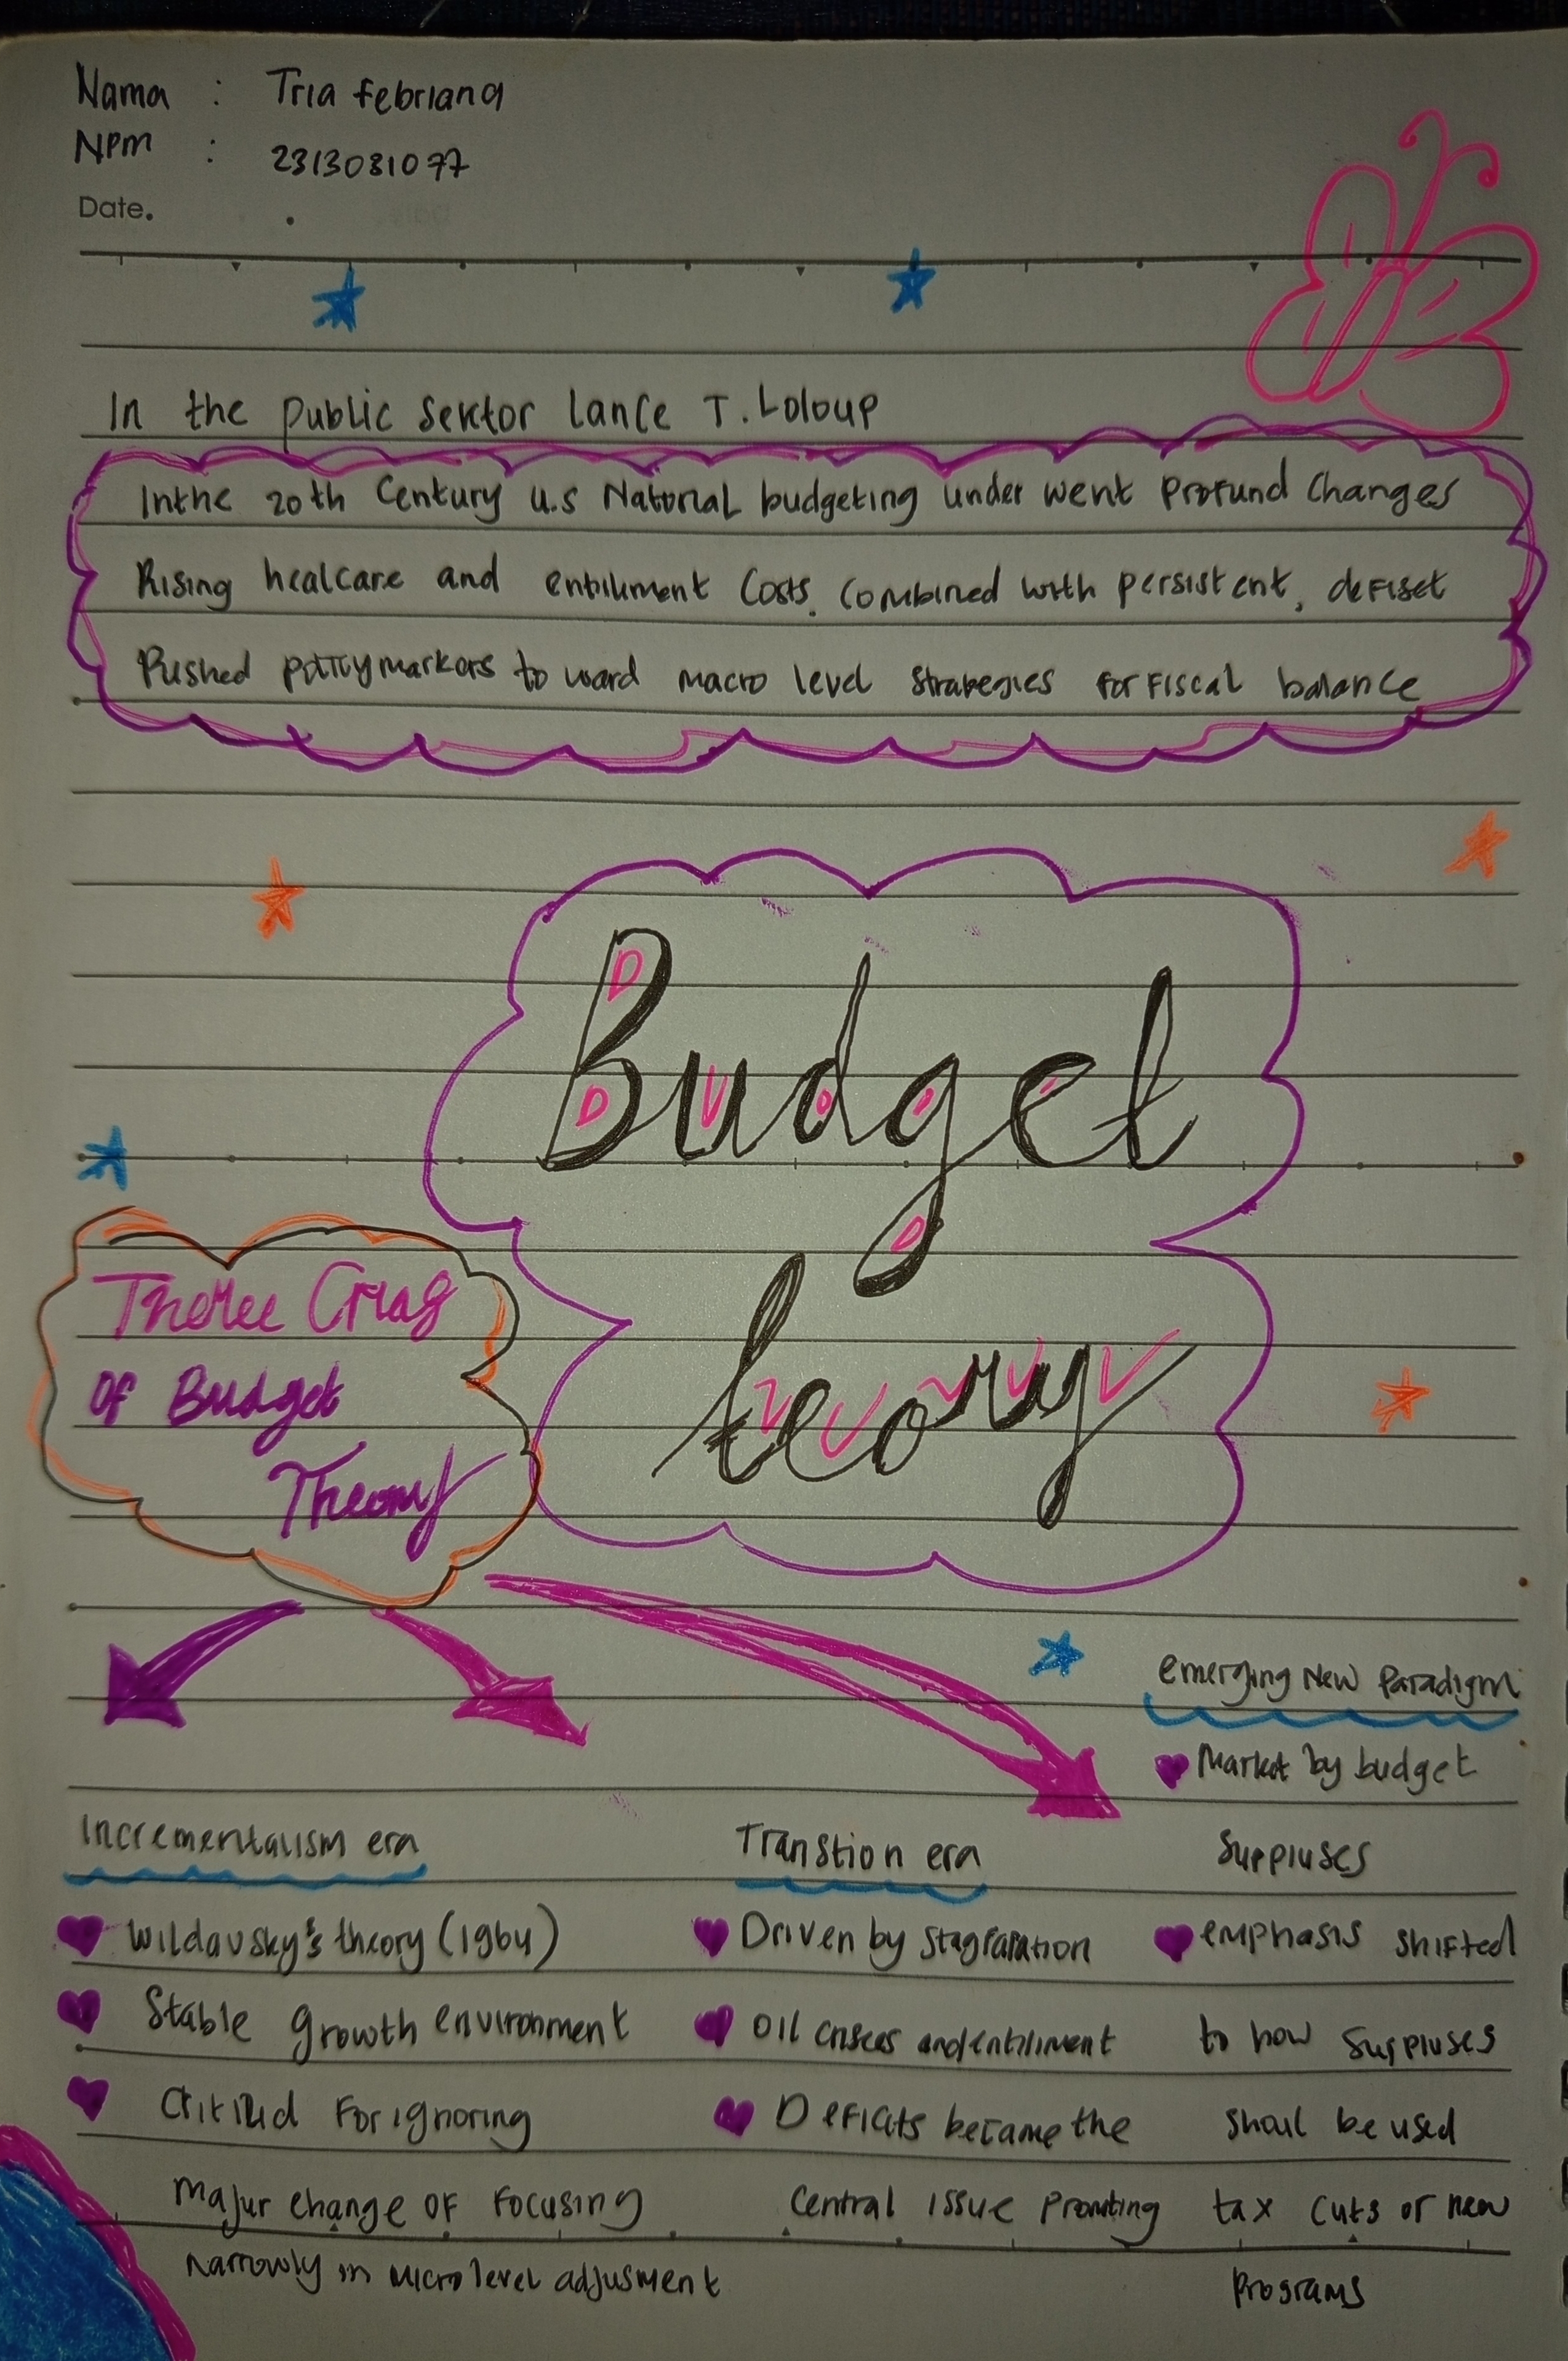 Nama : Tria Febriana
NPM : 2313031077
Date.
In the public Sektor lance T. Loloup
Inthe 20th Century U.S National budgeting under went Profund Changes
Rising healcare and entiliment Costs. Combined with persistent, defiset
Pushed policymarkors to ward macro level strategies for Fiscal balance
Budget
teory
Theree Crias
Of Budget
Theory
Incrementalism era
Wildavsky's theory (1964)
Stable growth environment
Critized For ignoring
Major change of Focusing
Narrowly in Micro level adjusment
Transtion era
Driven by Stagfaration
Oil crises and entiliment
Deficits became the
Central issue Promting
emerging New Paradigm
Market by budget
Suppluses
emphasis shifted
to how suppluses
shoul be used
tax cuts or new
Programs